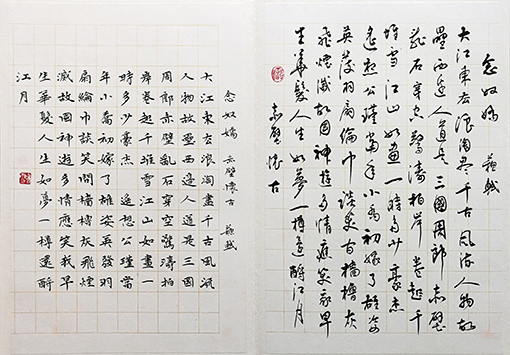 念奴嬌 蘇軾
大江東去浪淘盡千古風流人物故
壘西邊人道是三國周郎赤壁
亂石穿空驚濤拍岸卷起千
堆雪江山如畫一時多少豪杰
遙想公瑾當年小喬初嫁了雄姿
英發羽扇綸巾談笑間檣櫓灰
飛煙滅故國神遊多情應笑我早
生華髮人生如夢一樽還酹江月
赤壁懷古
念奴嬌 赤壁懷古 蘇軾
大江東去浪淘盡千古風流
人物故壘西邊人道是三國
周郎赤壁亂石穿空驚濤拍
岸卷起千堆雪江山如畫一
時多少豪杰 遙想公瑾當
年小喬初嫁了雄姿英發羽
扇綸巾談笑間檣櫓灰飛煙
滅故國神遊多情應笑我早
生華髮人生如夢一樽還酹
江月